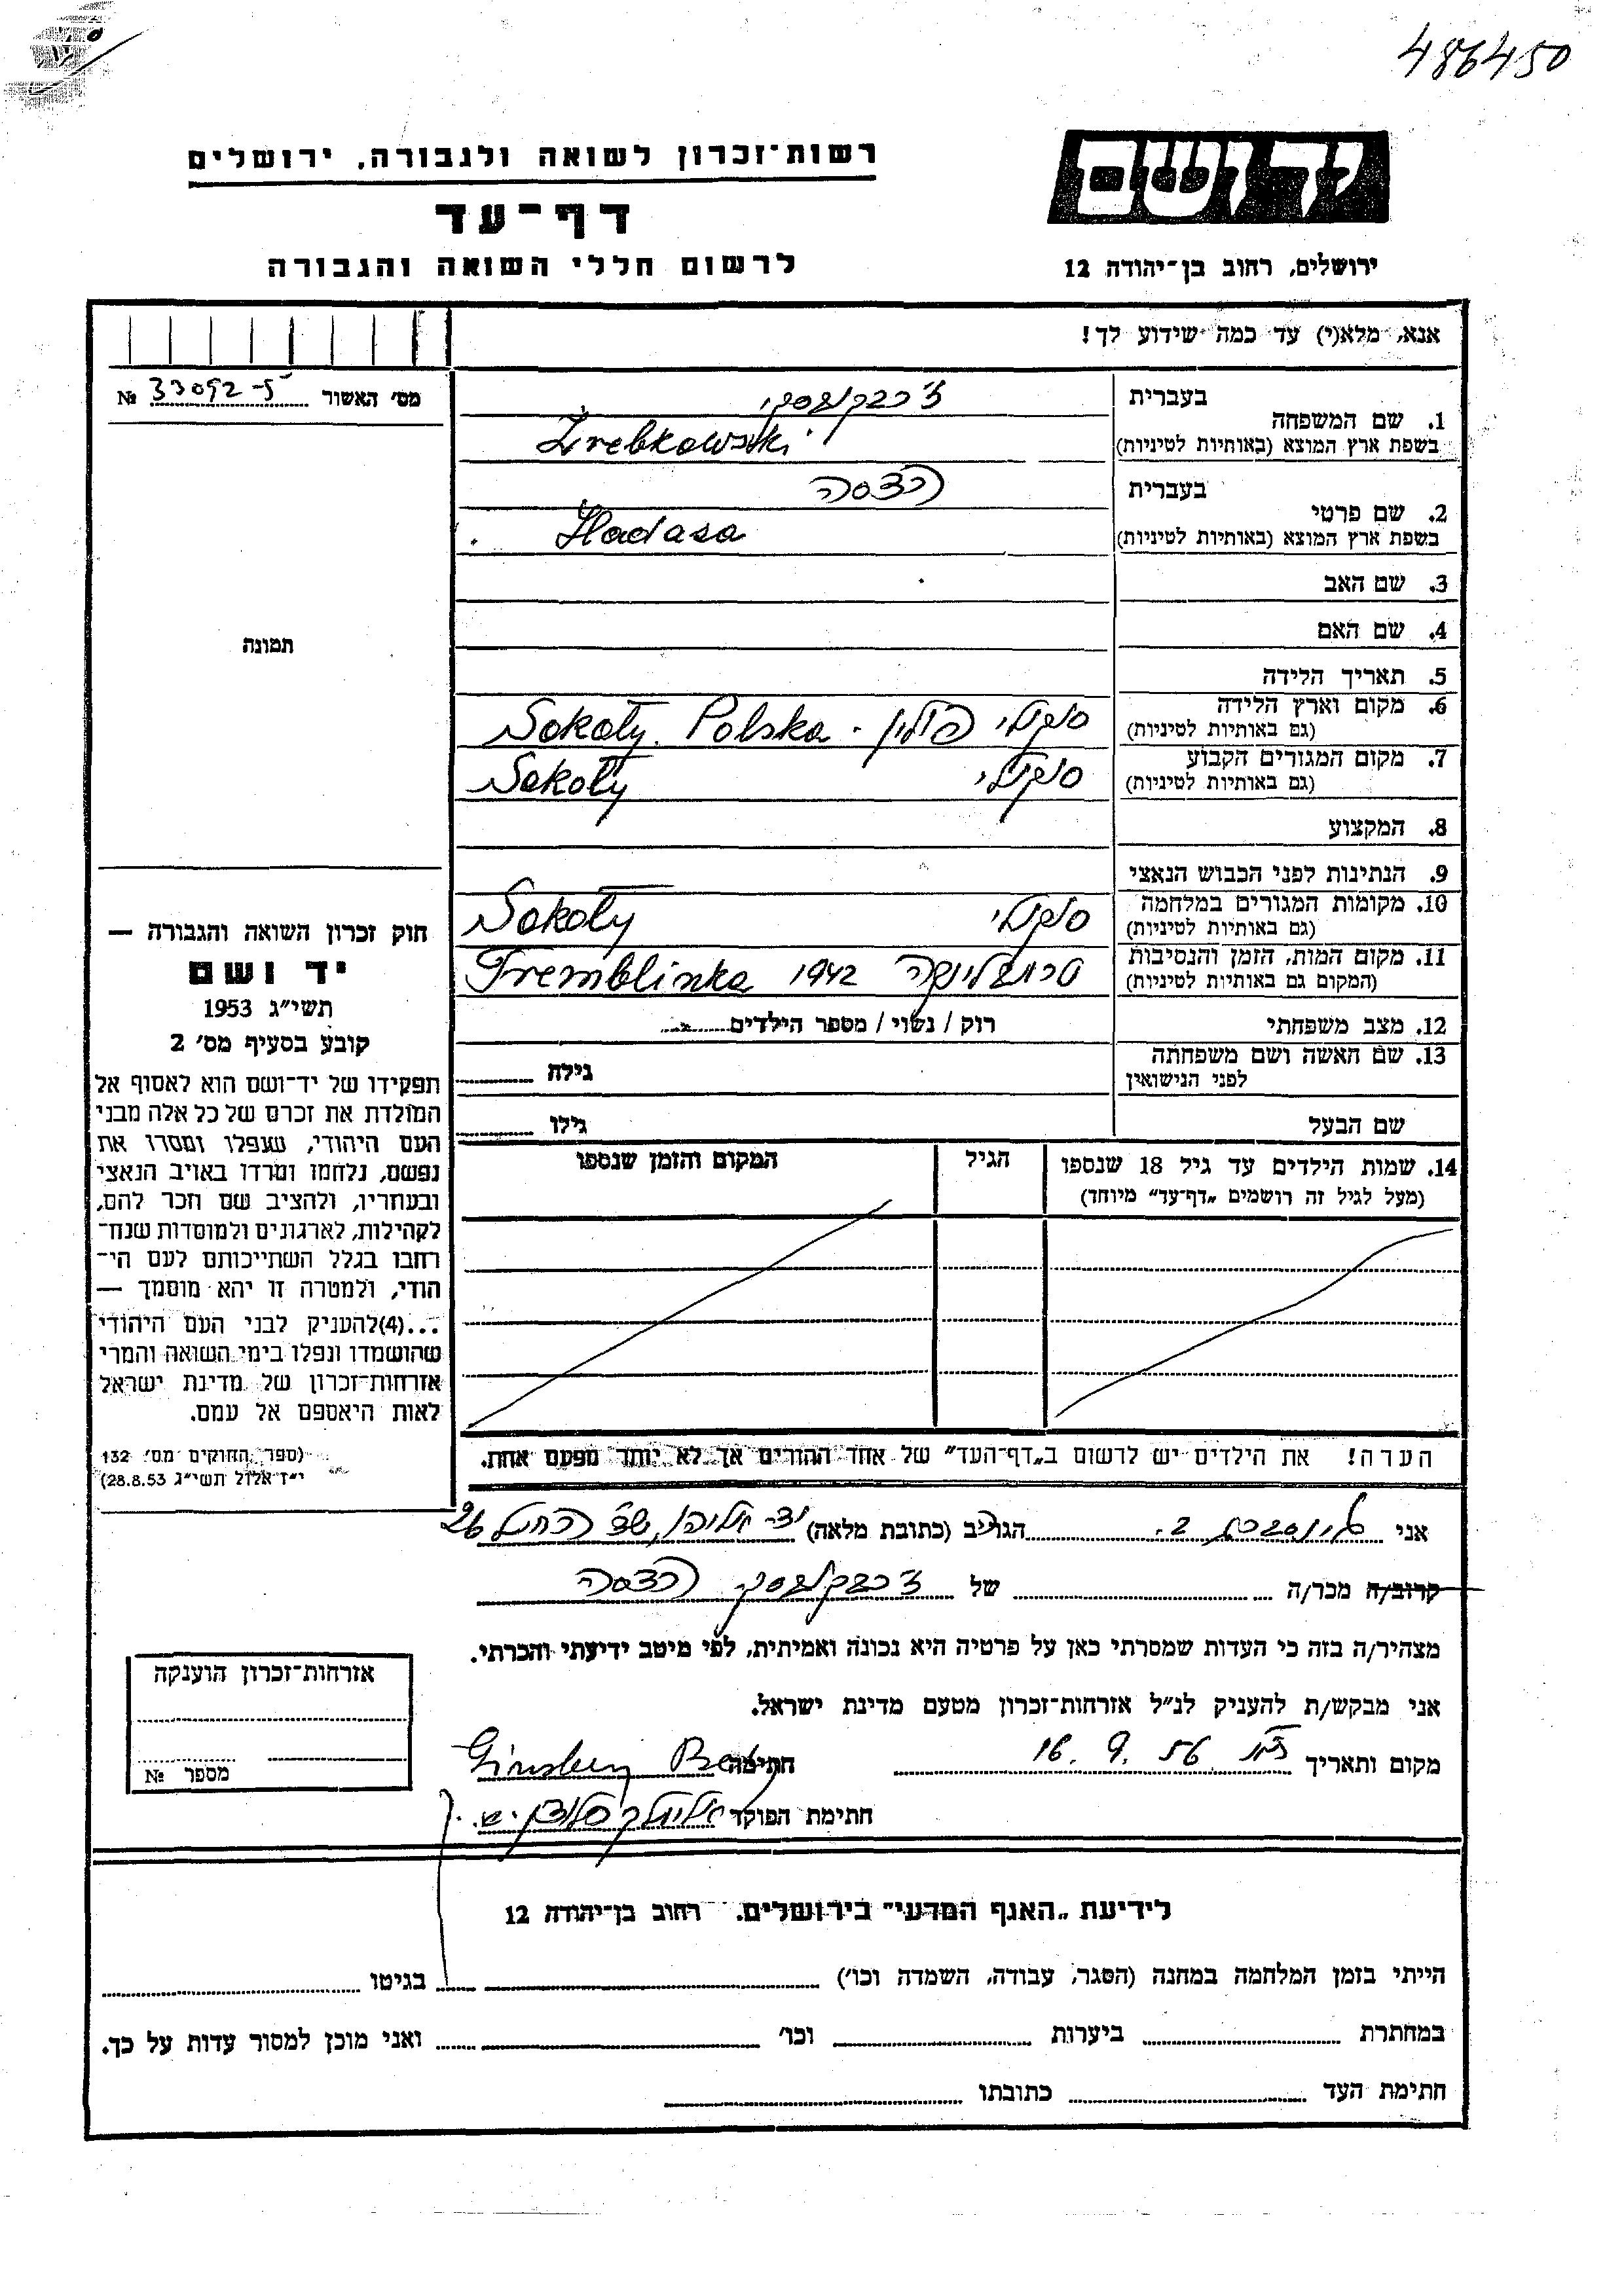 486450
יד ושם
רשות־זכרון לשואה ולגבורה, ירושלים
דף־עד
לרשום חללי השואה והגבורה
ירושלים, רחוב בן־יהודה 12
אנא, מלא(י) עד כמה שידוע לך!
מס׳ האשור № 33092-5
1. שם המשפחה
בעברית
ז׳רבקובסקי
בשפת ארץ המוצא (באותיות לטיניות) Zrebkowski
2. שם פרטי
בעברית הדסה
בשפת ארץ המוצא (באותיות לטיניות) Hadasa
3. שם האב
4. שם האם
תמונה
5. תאריך הלידה
6. מקום וארץ הלידה
(גם באותיות לטיניות) סוקולי פולין. Sokoły. Polska
7. מקום המגורים הקבוע
(גם באותיות לטיניות) סוקולי Sokoły
8. המקצוע
9. הנתינות לפני הכבוש הנאצי
10. מקומות המגורים במלחמה
(גם באותיות לטיניות) סוקולי Sokoły
11. מקום המות, הזמן והנסיבות
(המקום גם באותיות לטיניות) טרמבלינקה 1942 Tremblinka
12. מצב משפחתי רוק / נשוי / מספר הילדים
13. שם האשה ושם משפחתה
לפני הנישואין גילה
שם הבעל גילו
14. שמות הילדים עד גיל 18 שנספו
(מעל לגיל זה רושמים „דף־עד״ מיוחד)
הגיל
המקום והזמן שנספו
הערה! את הילדים יש לרשום ב„דף־העד״ של אחד ההורים אך לא יותר מפעם אחת.
חוק זכרון השואה והגבורה —
יד ושם
תשי״ג 1953
קובע בסעיף מס׳ 2
תפקידו של יד־ושם הוא לאסוף אל
המולדת את זכרם של כל אלה מבני
העם היהודי, שנפלו ומסרו את
נפשם, נלחמו ומרדו באויב הנאצי
ובעוזריו, ולהציב שם וזכר להם,
לקהילות, לארגונים ולמוסדות שנח־
רבו בגלל השתייכותם לעם הי־
הודי, ולמטרה זו יהא מוסמך —
...(4)להעניק לבני העם היהודי
שהושמדו ונפלו בימי השואה והמרי
אזרחות־זכרון של מדינת ישראל
לאות היאספם אל עמם.
(ספר החוקים מס׳ 132
י״ז אלול תשי״ג 28.8.53)
אני גינסברג ב. הגר ב (כתובת מלאה) יד אליהו, 26
קרוב/ה מכר/ה של ז׳רבקובסקי הדסה
מצהיר/ה בזה כי העדות שמסרתי כאן על פרטיה היא נכונה ואמיתית, לפי מיטב ידיעתי והכרתי.
אני מבקש/ת להעניק לנ״ל אזרחות־זכרון מטעם מדינת ישראל.
מקום ותאריך 16. 9. 56 חתימה Ginsburg
חתימת הפוקד
אזרחות־זכרון הוענקה
מספר №
לידיעת „האגף המדעי״ בירושלים, רחוב בן־יהודה 12
הייתי בזמן המלחמה במחנה (הסגר, עבודה, השמדה וכו׳) בגיטו
במחתרת ביערות וכו׳ ואני מוכן למסור עדות על כך.
חתימת העד כתובתו